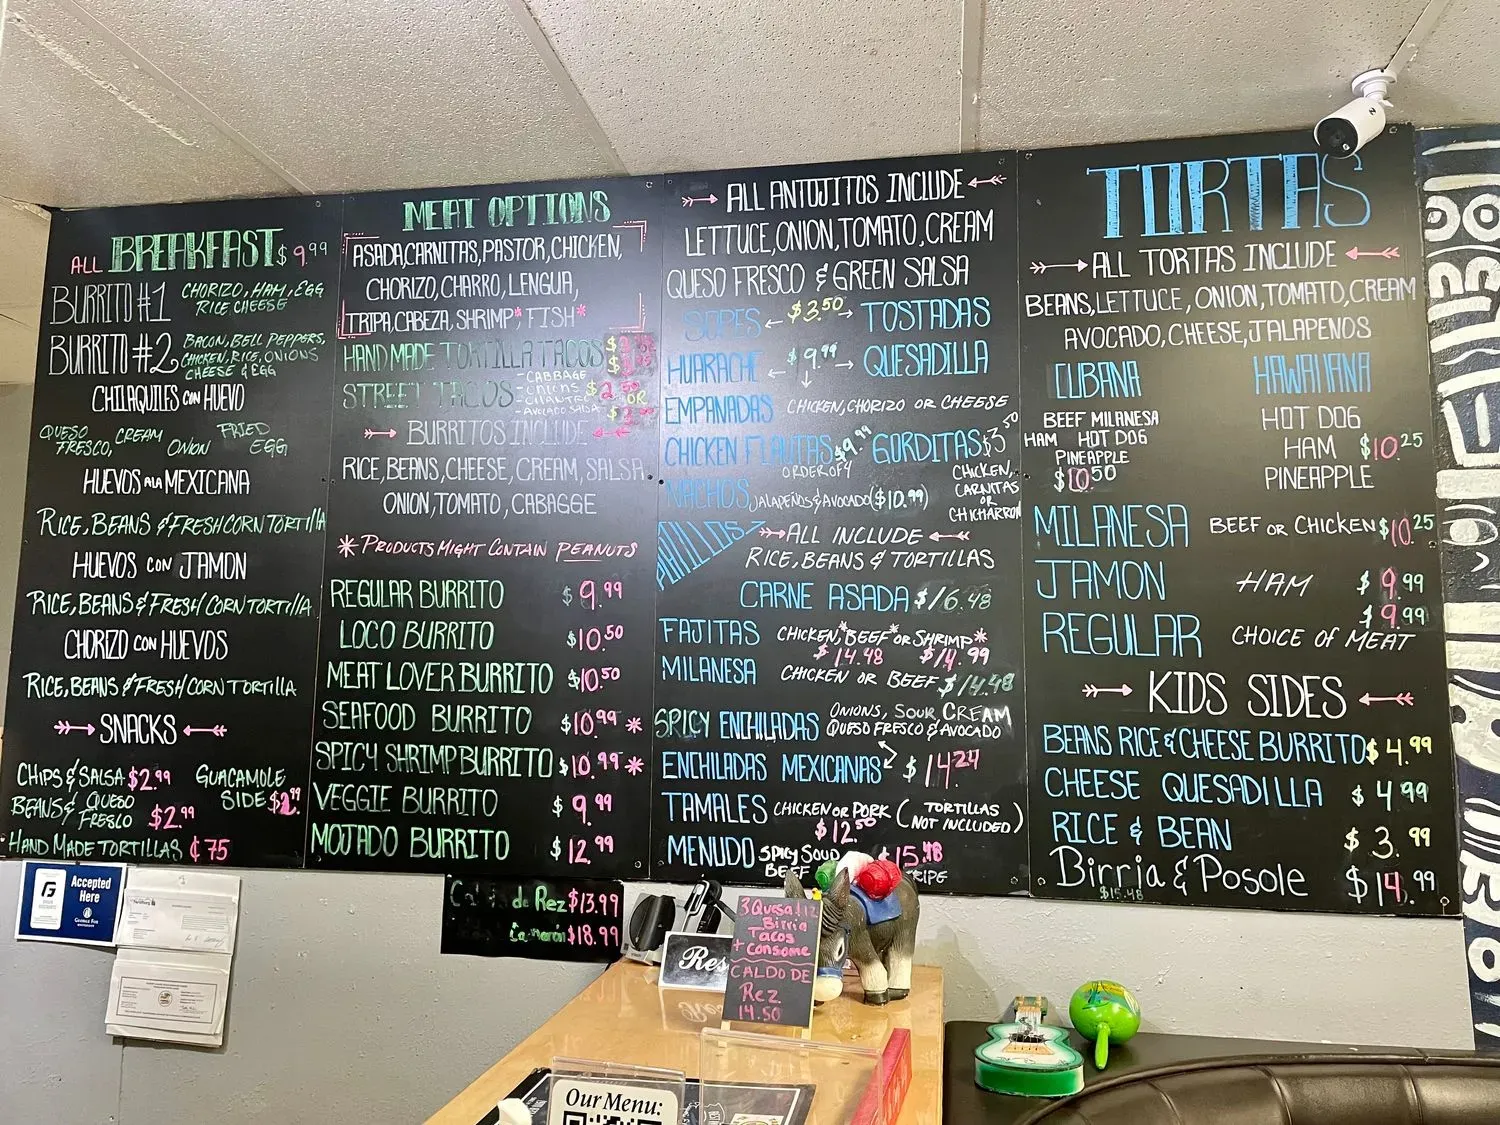 ALL BREAKFAST $9.99
BURRITO #1 CHORIZO, HAM, EGG
RICE CHEESE
BURRITO #2 BACON, BELL PEPPERS,
CHICKEN, RICE, ONIONS
CHEESE & EGG
CHILAQUILES CON HUEVO
QUESO FRESCO, CREAM ONION FRIED EGG
HUEVOS ALA MEXICANA
RICE, BEANS & FRESH CORN TORTILLA
HUEVOS CON JAMON
RICE, BEANS & FRESH CORN TORTILLA
CHORIZO CON HUEVOS
RICE, BEANS & FRESH CORN TORTILLA
SNACKS
CHIPS & SALSA $2.99
GUACAMOLE
SIDE $2.99
BEANS & QUESO
FRESCO $2.99
HAND MADE TORTILLAS ¢75
MEAT OPTIONS
ASADA, CARNITAS, PASTOR, CHICKEN,
CHORIZO, CHARRO, LENGUA,
TRIPA, CABEZA, SHRIMP* FISH*
HAND MADE TORTILLA TACOS
STREET TACOS
- CABBAGE
- ONIONS
- CILANTRO
- AVOCADO SALSA
$2.50
OR
BURRITOS INCLUDE
RICE, BEANS, CHEESE, CREAM, SALSA
ONION, TOMATO, CABAGGE
* PRODUCTS MIGHT CONTAIN PEANUTS
REGULAR BURRITO $9.99
LOCO BURRITO $10.50
MEAT LOVER BURRITO $10.50
SEAFOOD BURRITO $10.99 *
SPICY SHRIMP BURRITO $10.99 *
VEGGIE BURRITO $9.99
MOJADO BURRITO $12.99
de Rez $13.99
$18.99
ALL ANTOJITOS INCLUDE
LETTUCE, ONION, TOMATO, CREAM
QUESO FRESCO & GREEN SALSA
SOPES $3.50 TOSTADAS
HUARACHE $9.99 QUESADILLA
EMPANADAS CHICKEN, CHORIZO OR CHEESE
CHICKEN FLAUTAS $9.99 GORDITAS $3.50
ORDER OF 4
CHICKEN,
CARNITAS
OR
CHICHARRON
NACHOS JALAPEÑOS & AVOCADO ($10.99)
ALL INCLUDE
RICE, BEANS & TORTILLAS
CARNE ASADA $16.48
FAJITAS CHICKEN, BEEF* OR SHRIMP*
$14.48 $14.99
MILANESA CHICKEN OR BEEF $14.48
SPICY ENCHILADAS ONIONS, SOUR, CREAM
QUESO FRESCO & AVOCADO
ENCHILADAS MEXICANAS $14.24
TAMALES CHICKEN OR PORK (TORTILLAS
NOT INCLUDED)
$12.50
MENUDO SPICY SOUP $15.48
BEEF TRIPE
TORTAS
ALL TORTAS INCLUDE
BEANS, LETTUCE, ONION, TOMATO, CREAM
AVOCADO, CHEESE, JALAPENOS
CUBANA
BEEF MILANESA
HAM HOT DOG
PINEAPPLE
$10.50
HAWAIIANA
HOT DOG
HAM $10.25
PINEAPPLE
MILANESA BEEF OR CHICKEN $10.25
JAMON HAM $9.99
REGULAR CHOICE OF MEAT $9.99
KIDS SIDES
BEANS RICE & CHEESE BURRITO $4.99
CHEESE QUESADILLA $4.99
RICE & BEAN $3.99
Birria & Posole $14.99
$15.48
Accepted
Here
GEORGE FOX
Res
3 Quesa
Birria
Tacos
+ Consome
CALDO DE
Rez
14.50
Our Menu: